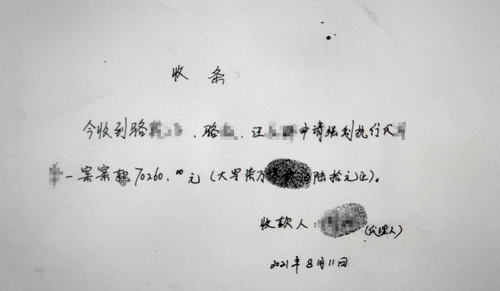 收条
今收到骆、骆、汪申请强制执行
一案案款70260.00元(大写柒万陆拾元正)。
收款人:(代理人)
2021年8月11日